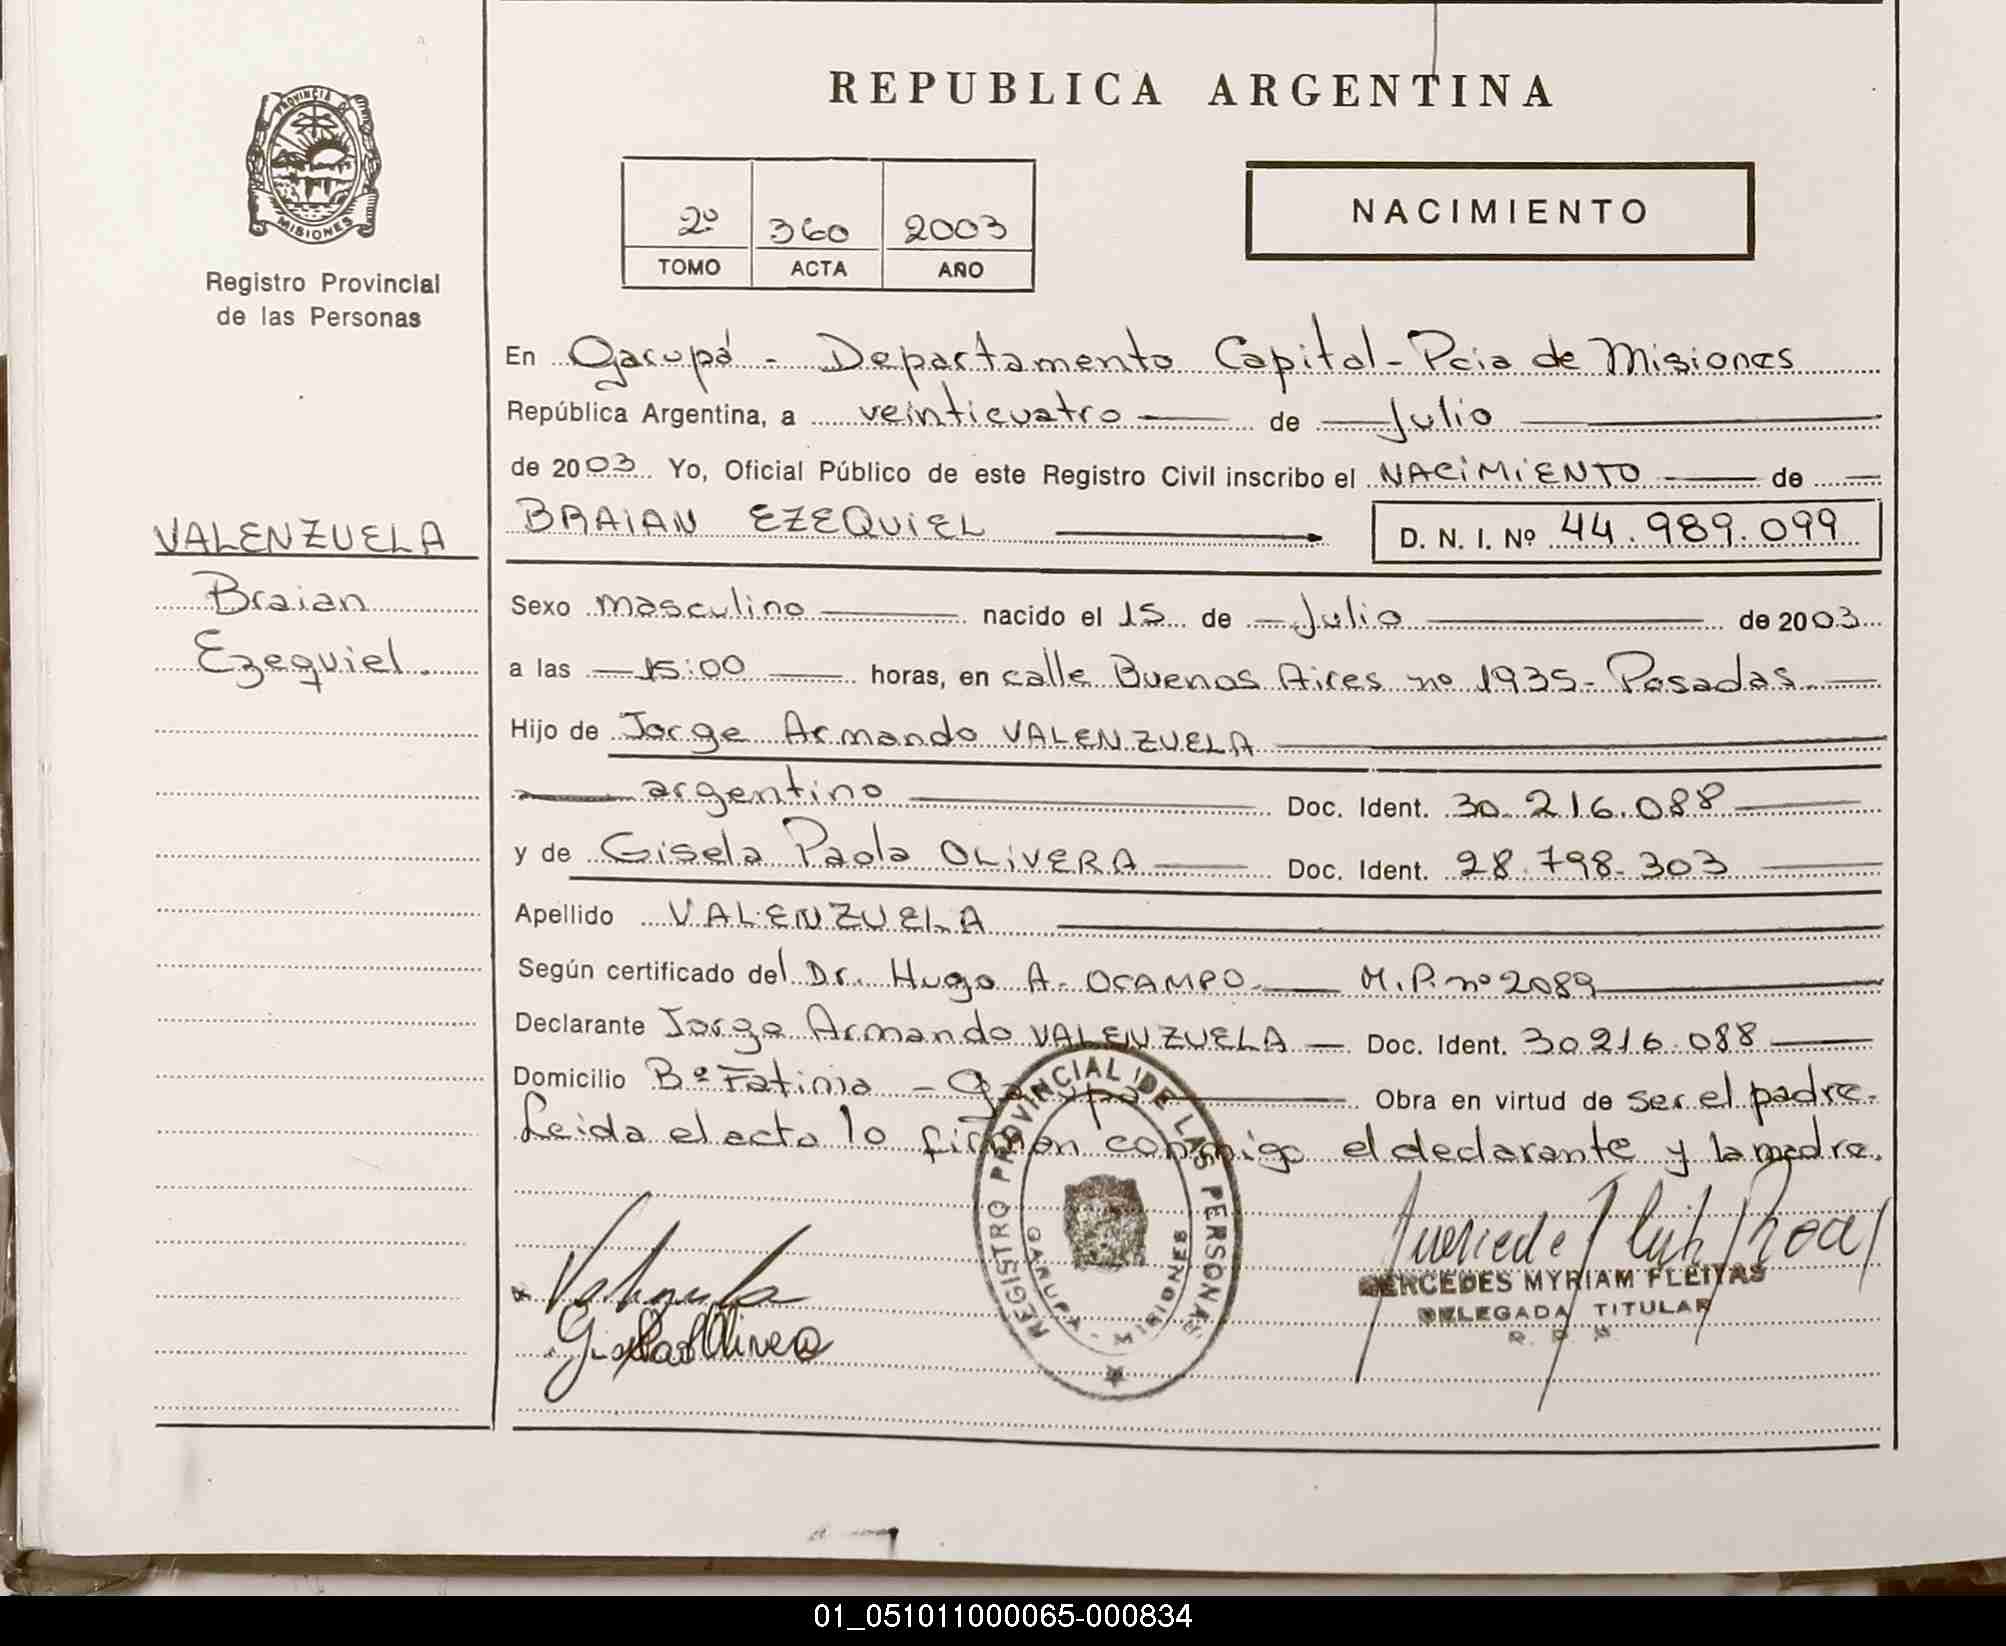 REPUBLICA ARGENTINA
PROVINCIA DE
MISIONES
Registro Provincial
de las Personas
2º 360 2003
TOMO ACTA AÑO
NACIMIENTO
En Garupá - Departamento Capital - Pcia de Misiones
República Argentina, a veinticuatro de Julio
de 2003 Yo, Oficial Público de este Registro Civil inscribo el NACIMIENTO de
BRAIAN EZEQUIEL D. N. I. Nº 44.989.099
VALENZUELA
Braian
Ezequiel.
Sexo masculino nacido el 15 de Julio de 2003
a las 15:00 horas, en calle Buenos Aires nº 1935 - Posadas
Hijo de Jorge Armando VALENZUELA
argentino Doc. Ident. 30.216.088
y de Gisela Paola OLIVERA Doc. Ident. 28.798.303
Apellido VALENZUELA
Según certificado del Dr. Hugo A. OCAMPO M.P. nº 2089
Declarante Jorge Armando VALENZUELA Doc. Ident. 30.216.088
Domicilio Bº Fatima - Garupá Obra en virtud de ser el padre.
Leida el acta lo firman conmigo el declarante y la madre.
REGISTRO PROVINCIAL DE LAS PERSONAS
GARUPA - MISIONES
Valenzuela
Olivera
MERCEDES MYRIAM FLEITAS
DELEGADA TITULAR
R. P. P.
01_051011000065-000834